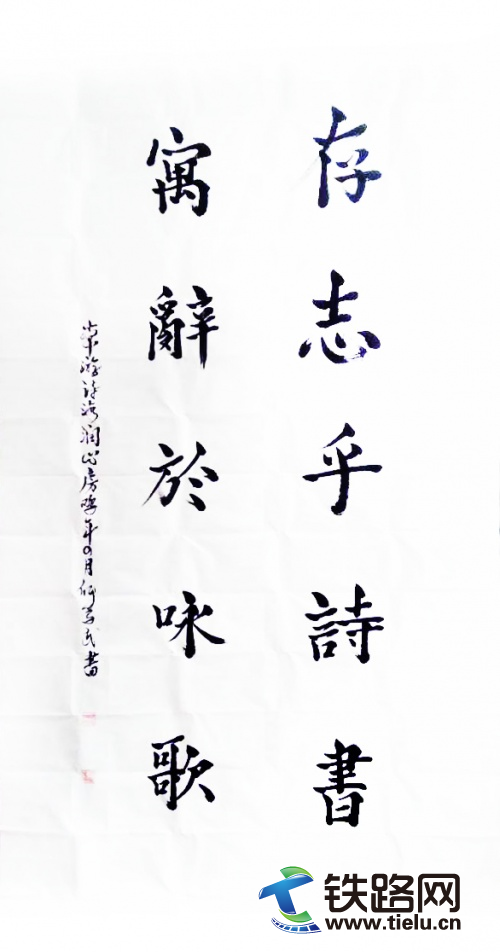 存志乎詩書
寓辭於咏歌
年四月
書
铁路网
www.tielu.cn